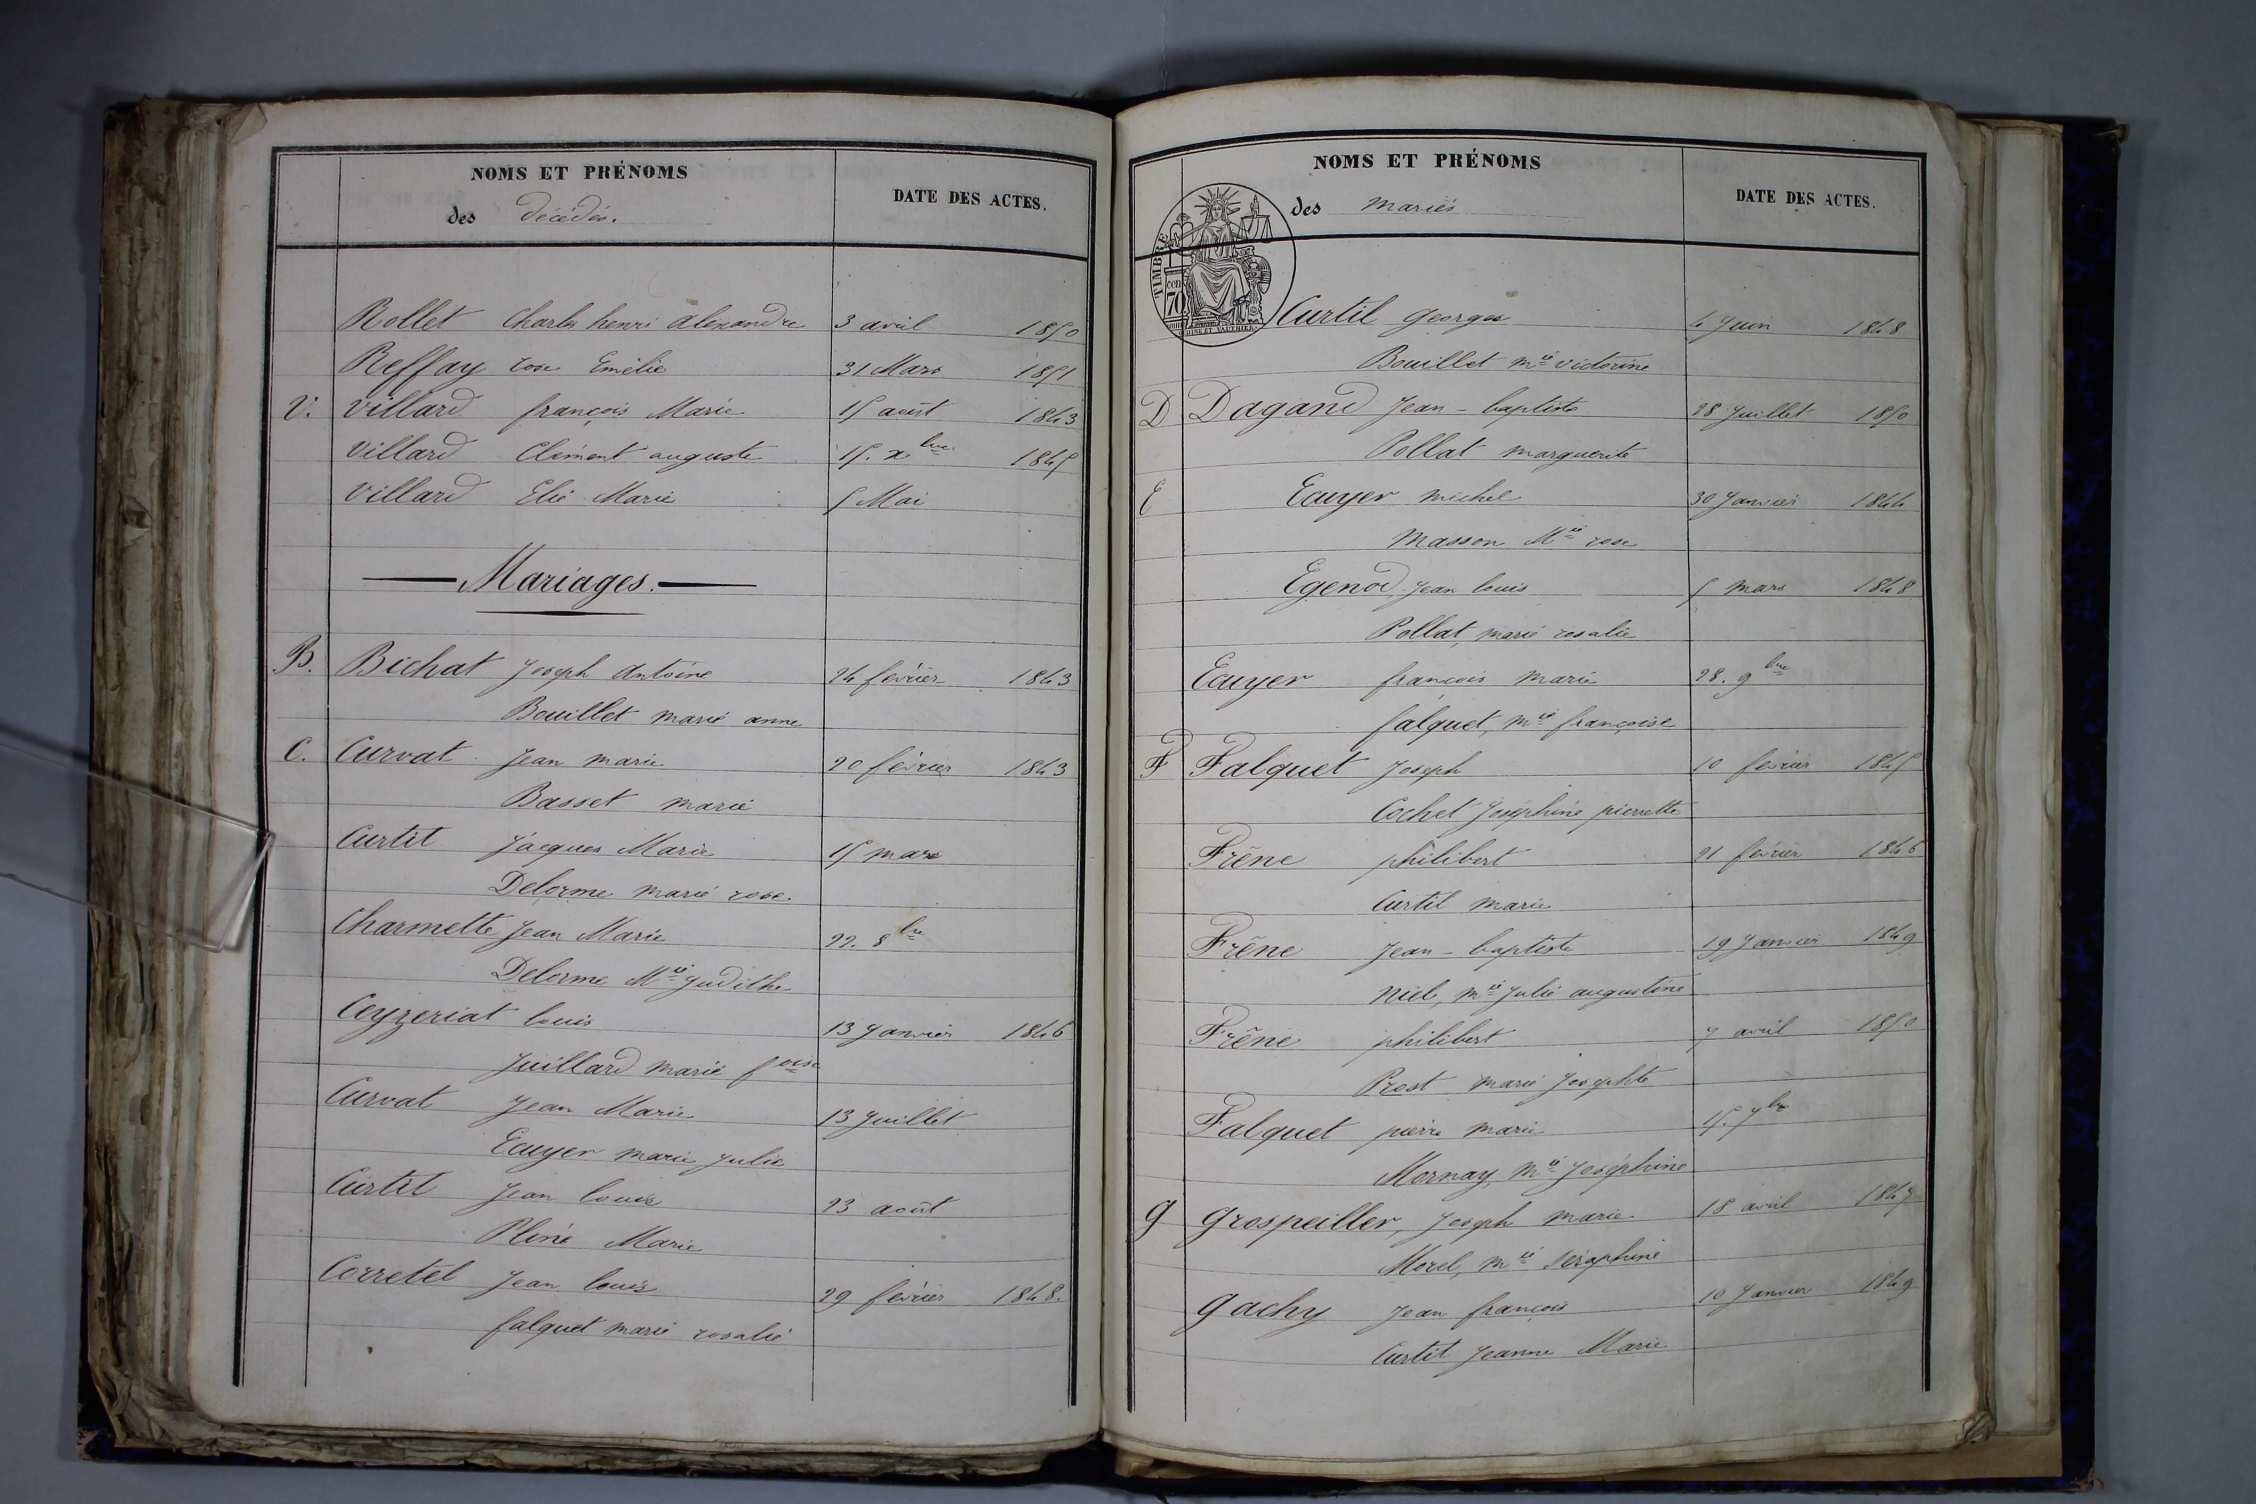 NOMS ET PRÉNOMS
des décédés.
DATE DES ACTES.
Rollet Charles henri Alexandre 3 avril 1850
Reffay rose Emélie 31 Mars 1851
V. Villard françois Marie 15 août 1843
Villard Clément auguste 15. xbre 1845
Villard Elie Marie 5 Mai
Mariages.
B. Bichat Joseph Antoine 24 février 1843
Bouillet marie anne
C. Curvat Jean marie 20 février 1843
Basset marie
Curtit Jacques Marie 15 mars
Delorme marie rose
Charmette Jean Marie 22. 8bre
Delorme Mie Judithe
Ceyzeriat louis 13 Janvier 1846
Juillard marie foise
Curvat Jean Marie 13 Juillet
Ecuyer marie Julie
Curtit Jean louis 23 août
Pléné Marie
Corretel Jean louis 29 février 1848.
falquet marie rosalie
NOMS ET PRÉNOMS
des mariés
DATE DES ACTES.
TIMBRE
70
Curtil Georges 4 Juin 1848
Bouillet mie victorine
D Dagand Jean-baptiste 28 Juillet 1850
Pollat marguerite
E Ecuyer michel 30 Janvier 1844
Masson Mie rose
Egenod Jean louis 5 mars 1848
Pollat, marie rosalie
Ecuyer françois marie 28. 9bre
falquet, mie françoise
F Falquet Joseph 10 février 1845
Cochet Joséphine pierrette
Frêne philibert 21 février 1846
Curtil marie
Frêne Jean-baptiste 19 Janvier 1849
Niel, mie Julie augustine
Frêne philibert 7 avril 1850
Prost marie Josephte
Falquet pierre marie 15. 7bre
Mornay, mie Joséphine
G Grospeiller, Joseph marie 18 avril 1847
Morel, mie Séraphine
Gachy Jean françois 10 Janvier 1849
Curtit Jeanne Marie